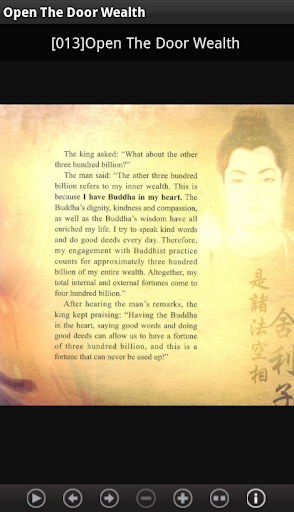 Open The Door Wealth
[013]Open The Door Wealth
The king asked: “What about the other
three hundred billion?”
The man said: “The other three hundred
billion refers to my inner wealth. This is
because I have Buddha in my heart. The
Buddha’s dignity, kindness and compassion,
as well as the Buddha’s wisdom have all
enriched my life. I try to speak kind words
and do good deeds every day. Therefore,
my engagement with Buddhist practice
counts for approximately three hundred
billion of my entire wealth. Altogether, my
total internal and external fortunes come to
four hundred billion.”
After hearing the man’s remarks, the
king kept praising: “Having the Buddha
in the heart, saying good words and doing
good deeds can allow us to have a fortune
of three hundred billion, and this is a
fortune that can never be used up!”
舍利子
是諸法空相